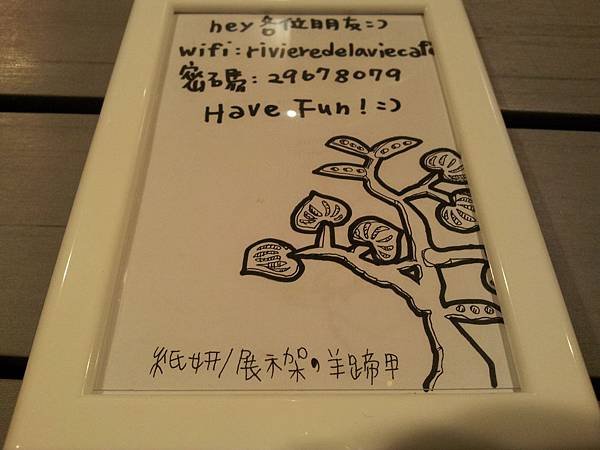 hey 各位朋友=)
wifi:rivieredelaviecafe
密碼:29678079
Have Fun!=)
紙妍/展示架。羊蹄甲